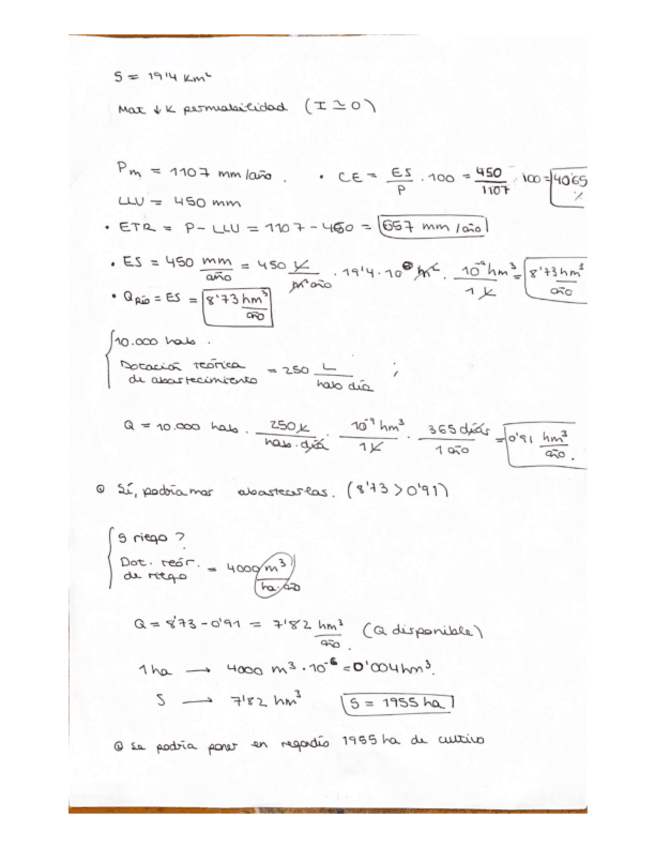 S = 19'4 Km²
Mat ↓ K permeabilidad (I ≃ 0)
Pm = 1107 mm/año . • CE = ES/P · 100 = 450/1107 · 100 = 40'65 %
LLU = 450 mm
• ETR = P - LLU = 1107 - 450 = 657 mm/año
• ES = 450 mm/año = 450 L/m² año · 19'4 · 10⁶ m² · 10⁻⁹ hm³/1 L = 8'73 hm³/año
• QRío = ES = 8'73 hm³/año
10.000 hab .
Dotación teórica de abastecimiento = 250 L/hab día ;
Q = 10.000 hab . 250 L/hab. día · 10⁻⁹ hm³/1 L · 365 días/1 año = 0'91 hm³/año .
Sí, podríamos abastecerlas. (8'73 > 0'91)
S riego ?
Dot. teór. de riego = 4000 m³/ha·año
Q = 8'73 - 0'91 = 7'82 hm³/año . (Q disponible)
1 ha → 4000 m³ · 10⁻⁶ = 0'004 hm³.
S → 7'82 hm³ S = 1955 ha
Se podría poner en regadío 1955 ha de cultivo